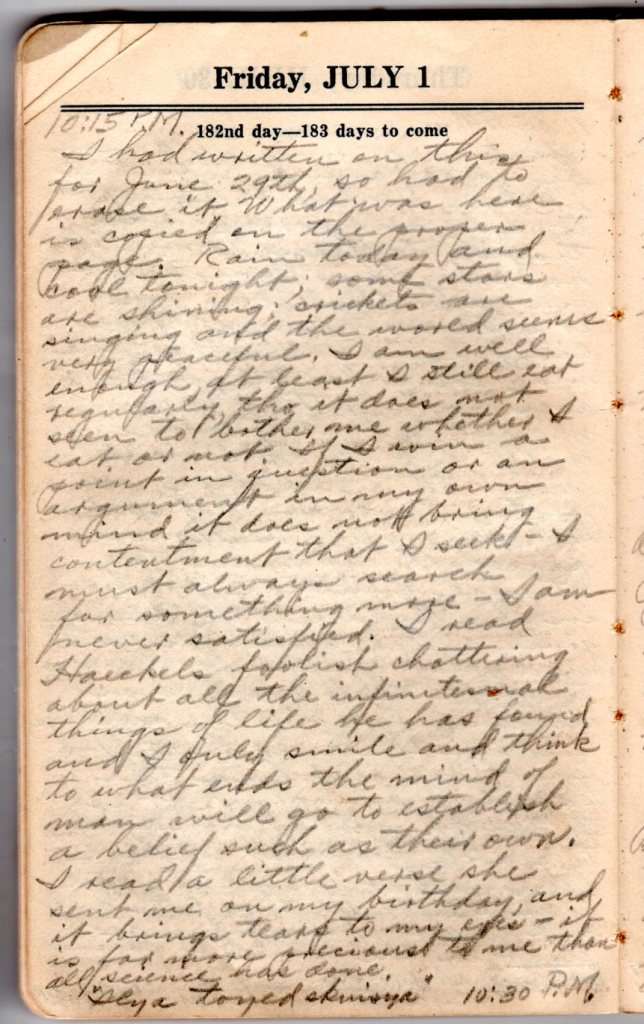 Friday, JULY 1
10:15 P.M.
182nd day—183 days to come
I had written on this
for June 29th, so had to
erase it What was here
is copied on the proper
page. Rain today and
cool tonight; some stars
are shining; crickets are
singing and the world seems
very peaceful. I am well
enough, at least I still eat
regularly, tho it does not
seem to bother me whether I
eat or not. If I win a
point in question or an
argument in my own
mind it does not bring
contentment that I seek - I
must always search
for something more - I am
never satisfied. I read
Haeckels foolish chattering
about all the infinitesmal
things of life he has found
and I only smile and think
to what ends the mind of
man will go to establish
a belief such as their own.
I read a little verse she
sent me on my birthday, and
it brings tears to my eyes - it
is far more precious to me than
all science has done.
"Ilya toyed" 10:30 P.M.